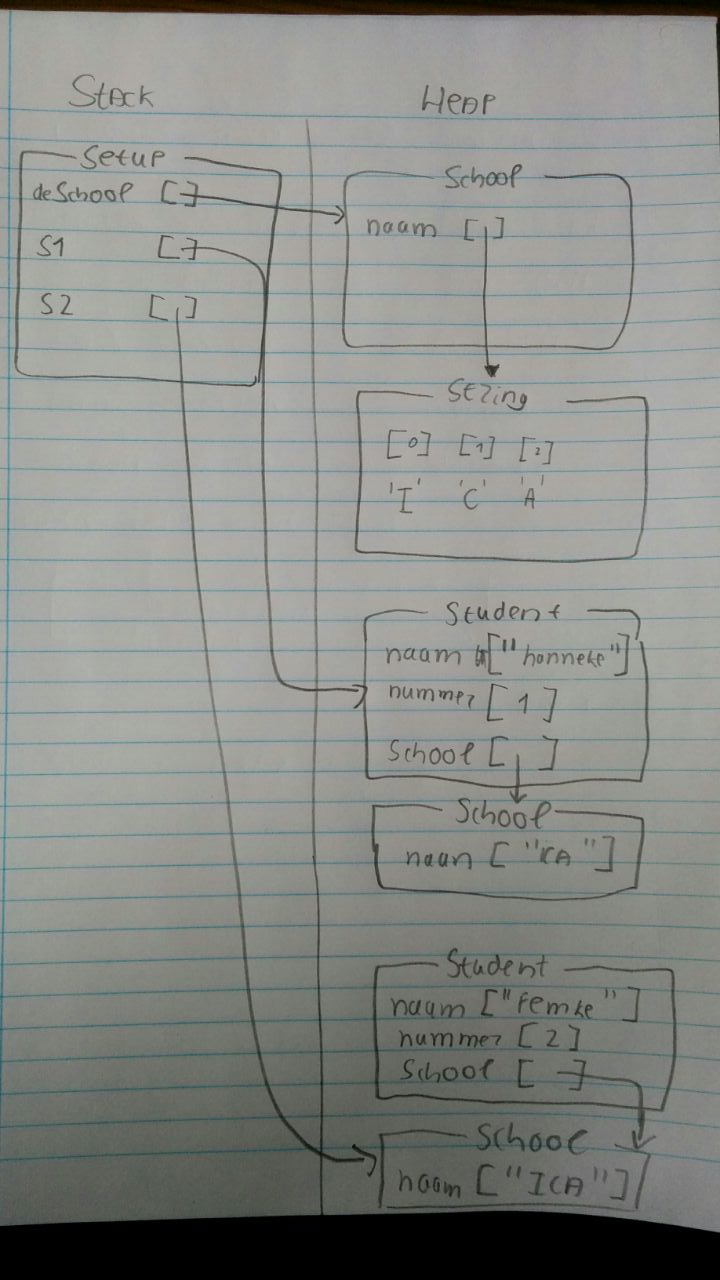 Stack
Heap
Setup
deSchool []
S1 []
S2 []
School
naam []
String
[0] [1] [2]
'I' 'C' 'A'
Student
naam ["honneke"]
nummer [1]
School [ ]
School
naam ["ICA"]
Student
naam ["Femke"]
nummer [2]
School [ ]
School
naam ["ICA"]